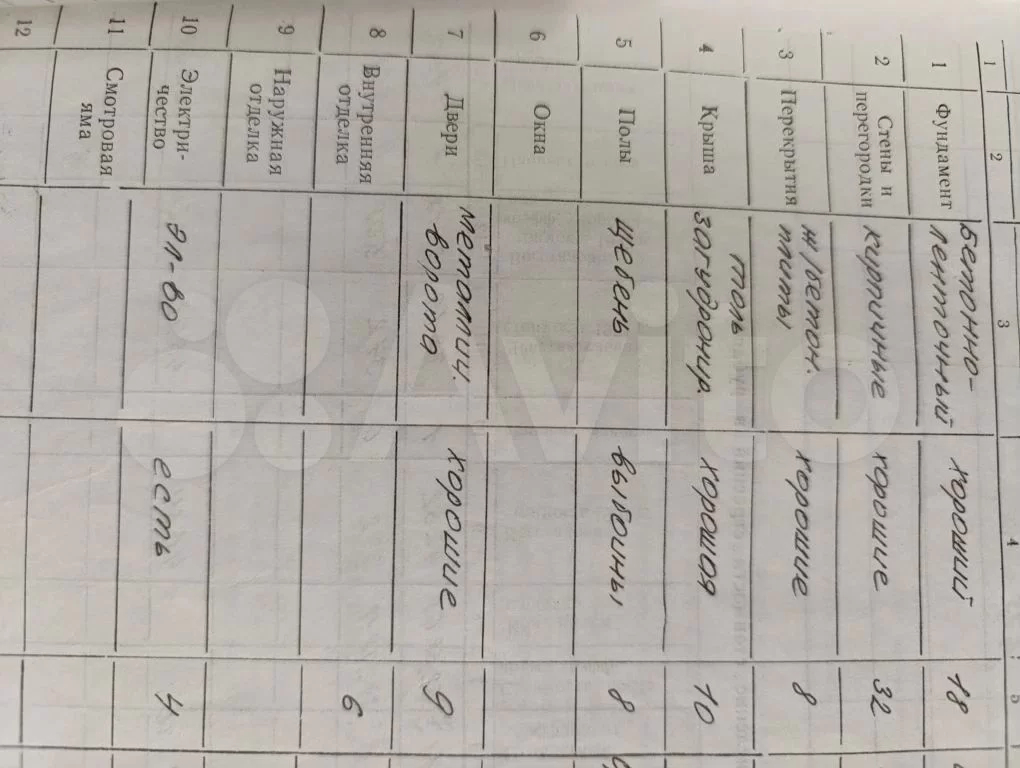 1 2 3 4 5
1 Фундамент Бетонно- хороший 18
ленточный
2 Стены и кирпичные хорошие 32
перегородки
3 Перекрытия ж/бетон. хорошие 8
плиты
4 Крыша толь хорошая 10
загудронир.
5 Полы щебень выбоины 8
6 Окна
7 Двери металлич. хорошие 9
ворота
8 Внутренняя 6
отделка
9 Наружная
отделка
10 Электри- эл-во есть 4
чество
11 Смотровая
яма
12
Avito